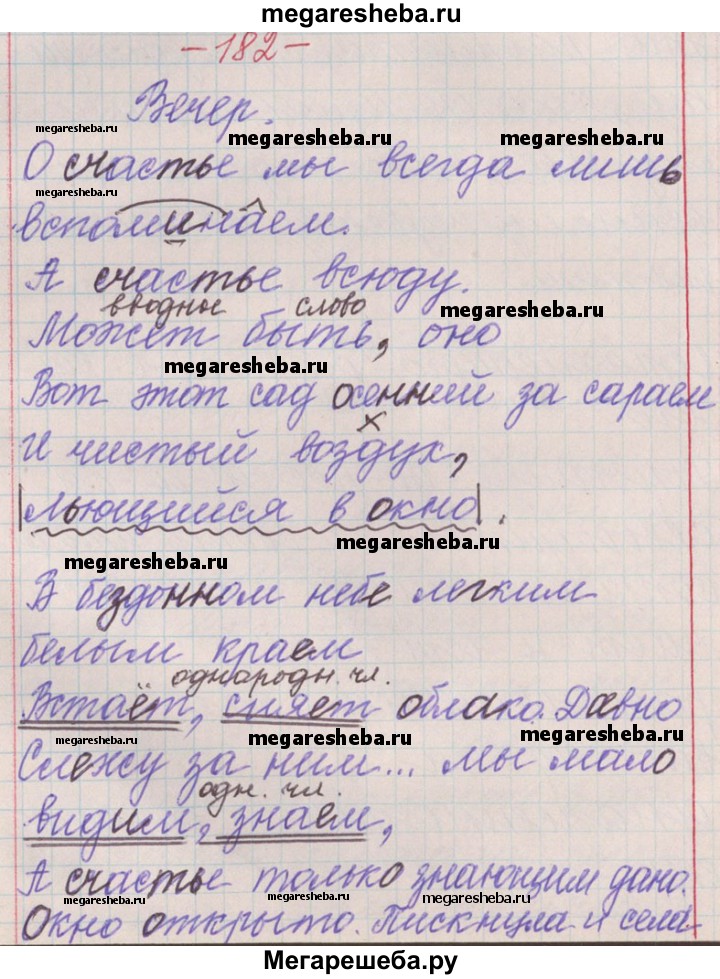 megaresheba.ru
-182-
Вечер.
megaresheba.ru
megaresheba.ru
megaresheba.ru
О счастье мы всегда лишь
megaresheba.ru
вспоминаем.
А счастье всюду.
вводные слово
megaresheba.ru
Может быть, оно
megaresheba.ru
Вот этот сад осенний за сараем
х
И чистый воздух,
льющийся в окно.
megaresheba.ru
megaresheba.ru
В бездонном небе легким
белым краем
однородн. чл.
Встаёт, сияет облако. Давно
megaresheba.ru
megaresheba.ru
megaresheba.ru
Слежу за ним... мы мало
одн. чл.
видим, знаем,
megaresheba.ru
А счастье только знающим дано.
megaresheba.ru
megaresheba.ru
megaresheba.ru
Окно открыто. Пискнула и села
Мегарешеба.ру